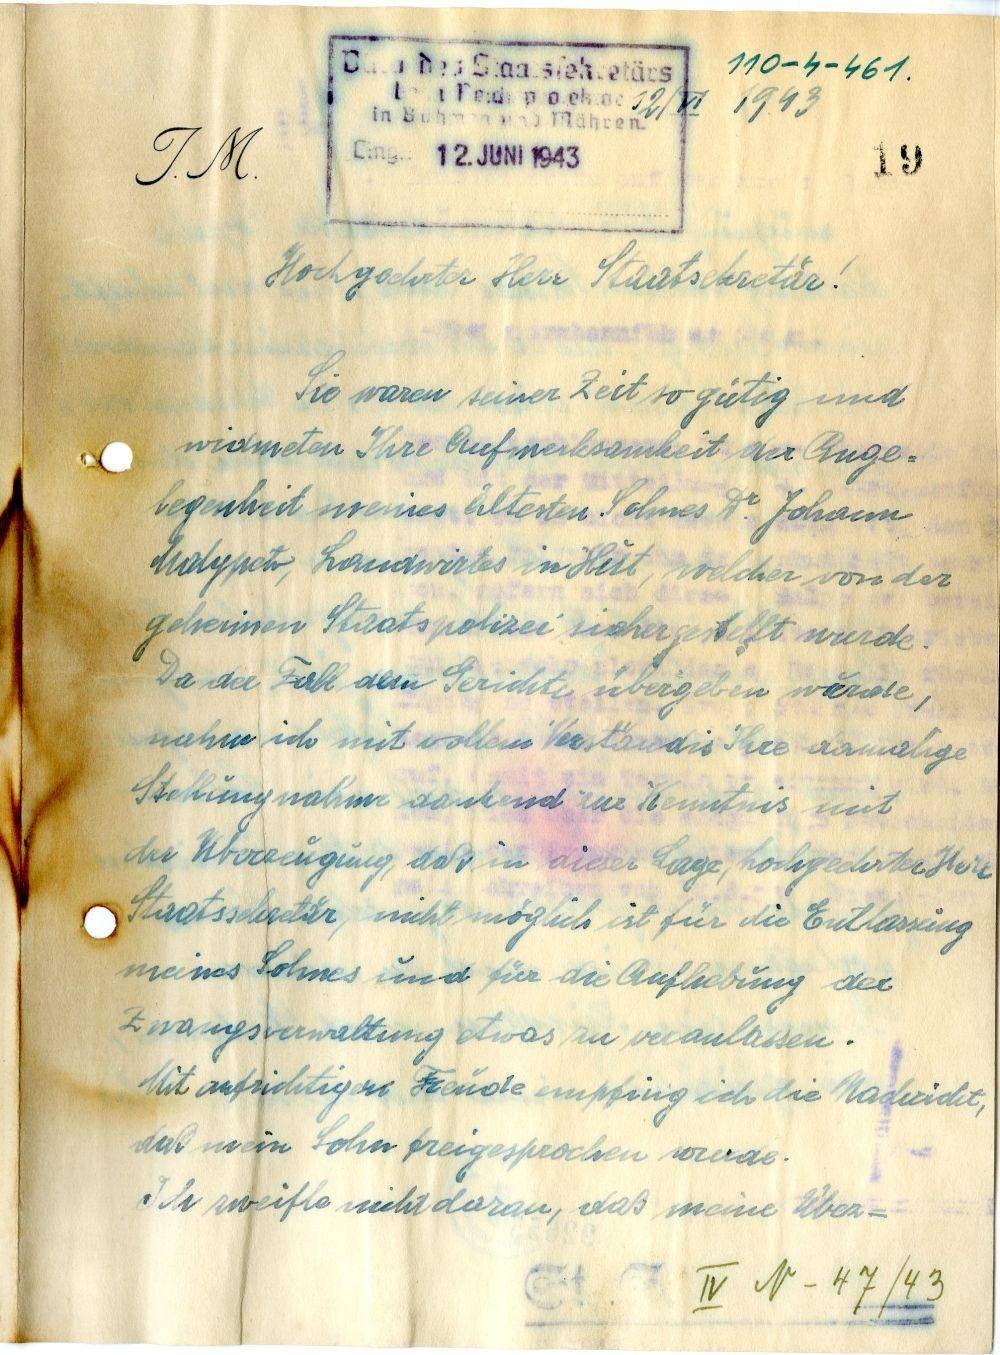 Büro des Staatssekretärs
beim Reichsprotektor
in Böhmen und Mähren
Eing.: 12. JUNI 1943
110-4-461.
12/VI 1943
J. M.
19
Hochgeehrter Herr Staatsekretär!
Sie waren seiner Zeit so gütig und
widmeten Ihre Aufmerksamkeit der Ange=
legenheit meines ältesten Sohnes Dr. Johann
Malypetr, Landwirtes in , welcher von der
geheimen Staatspolizei sichergestellt wurde.
Da der Fall dem Gerichte übergeben würde,
nahm ich mit vollem Verständis Ihre damalige
Stellungnahme dankend zur Kenntnis mit
der Überzeugung, daß in dieser Lage, hochgeehrter Herr
Staatssekretär, nicht möglich ist für die Entlassung
meines Sohnes und für die Aufhebung der
Zwangsverwaltung etwas zu veranlassen.
Mit aufrichtigen Freude empfing ich die Nachricht,
daß mein Sohn freigesprochen wurde.
Ich zweifle nicht daran, daß meine Über=
IV N - 47/43